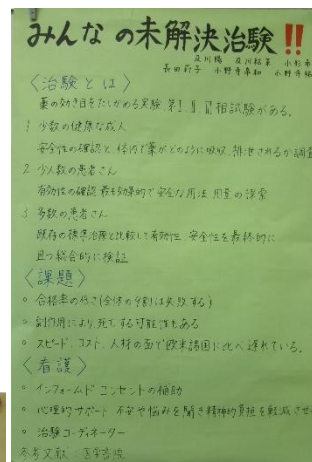 みんなの未解決治験!!
及川陽 及川
〈治験とは〉
薬の効き目をたしかめる実験 第Ⅰ.Ⅱ.Ⅲ相試験がある。
1 少数の健康な成人
安全性の確認と体内で薬がどのように吸収、排泄されるか調査
2 少人数の患者さん
有効性の確認 最も効果的で安全な用法 用量の探索
3 多数の患者さん
既存の標準治療と比較して有効性 安全性を最終的に
且つ総合的に検証
〈課題〉
○ 合格率の低さ(全体の9割は失敗する)
○ 副作用により、死亡する可能性もある
○ スピード、コスト、人材の面で欧米諸国に比べ遅れている。
〈看護〉
○ インフォームドコンセントの補助
○ 心理的サポート 不安や悩みを聞き精神的負担を軽減させ
○ 治験コーディネーター
参考文献:医学書院